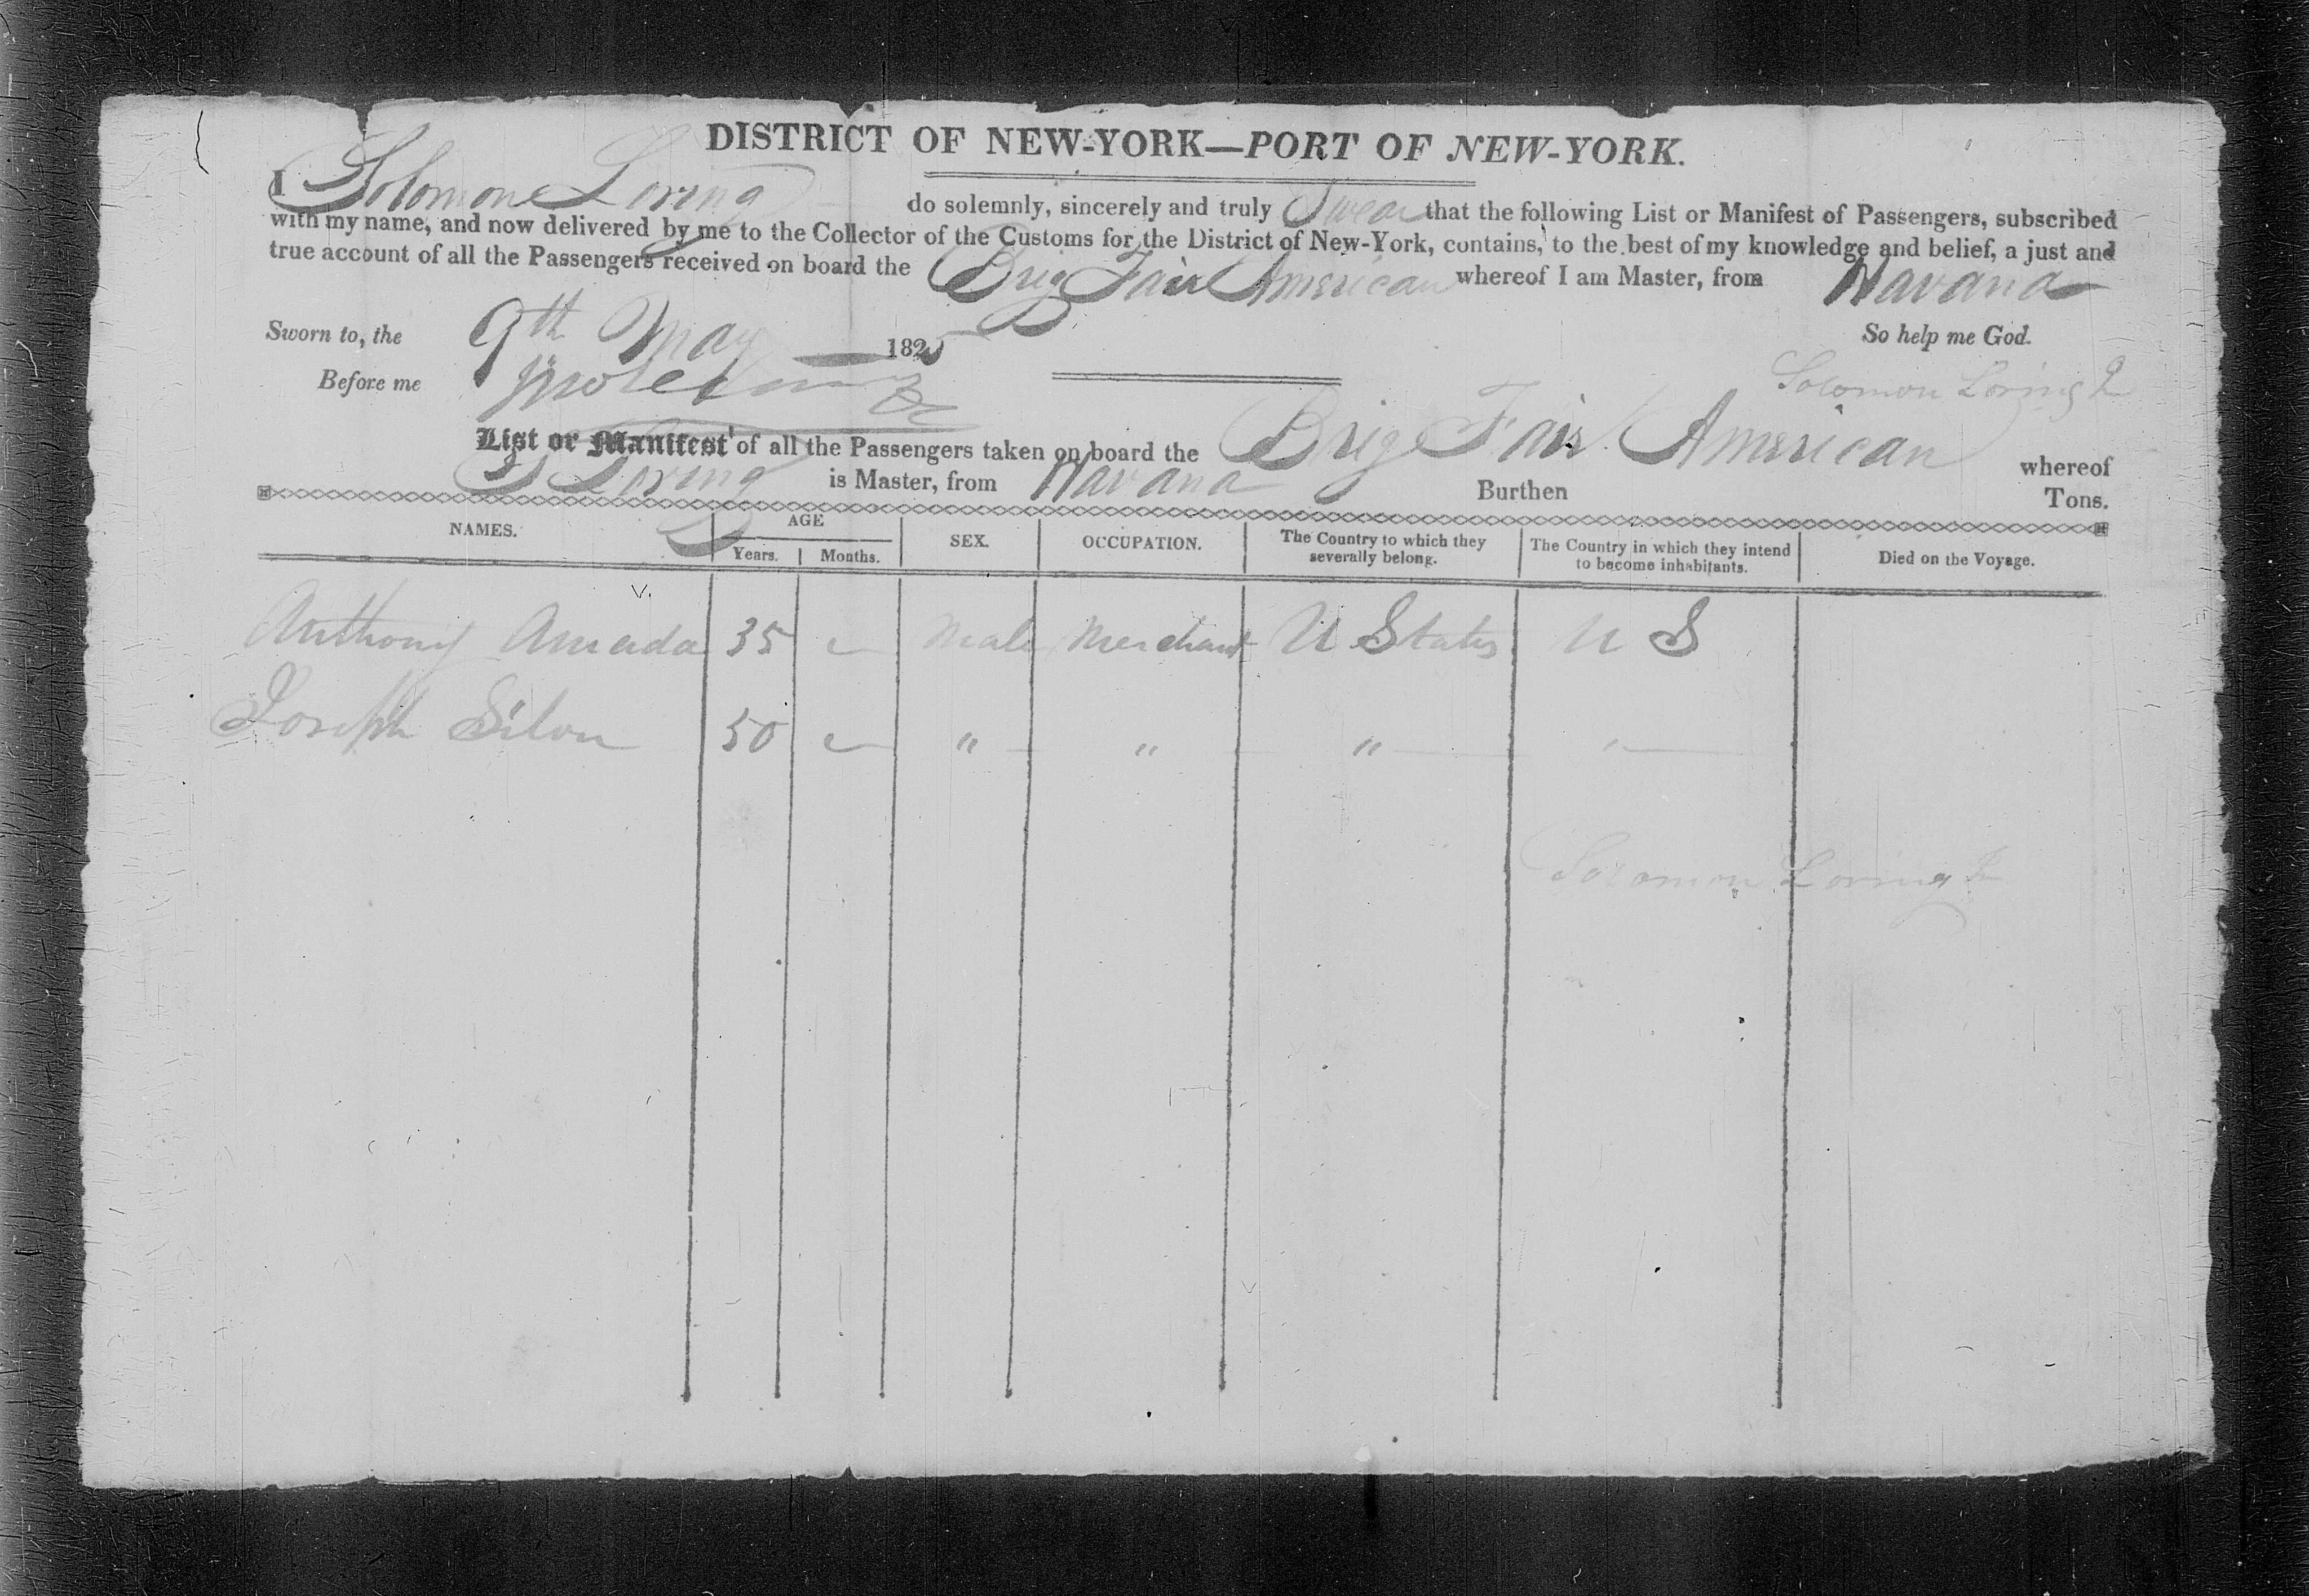 DISTRICT OF NEW-YORK—PORT OF NEW-YORK.
I Solomon Loring do solemnly, sincerely and truly Swear that the following List or Manifest of Passengers, subscribed
with my name, and now delivered by me to the Collector of the Customs for the District of New-York, contains, to the best of my knowledge and belief, a just and
true account of all the Passengers received on board the Brig Fair American whereof I am Master, from Havana
Sworn to, the 9th May 1825 So help me God.
Before me
Solomon Loring Jr
List or Manifest of all the Passengers taken on board the Brig Fair American whereof
S Loring is Master, from Havana Burthen Tons.
NAMES. AGE SEX. OCCUPATION. The Country to which they severally belong. The Country in which they intend to become inhabitants. Died on the Voyage.
Years. Months.
Anthony Amada 35 Male Merchant U States U S
Joseph Silva 50 " " " "
Solomon Loring Jr